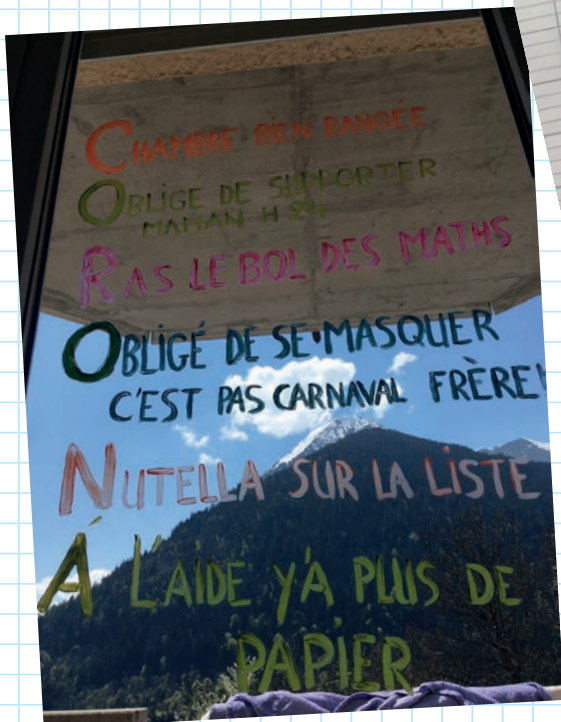 CHAMBRE BIEN RANGÉE
OBLIGÉ DE SUPPORTER
MAMAN H 24
RAS LE BOL DES MATHS
OBLIGÉ DE SE MASQUER
C'EST PAS CARNAVAL FRÈRE!
NUTELLA SUR LA LISTE
Á L'AIDE Y'A PLUS DE
PAPIER